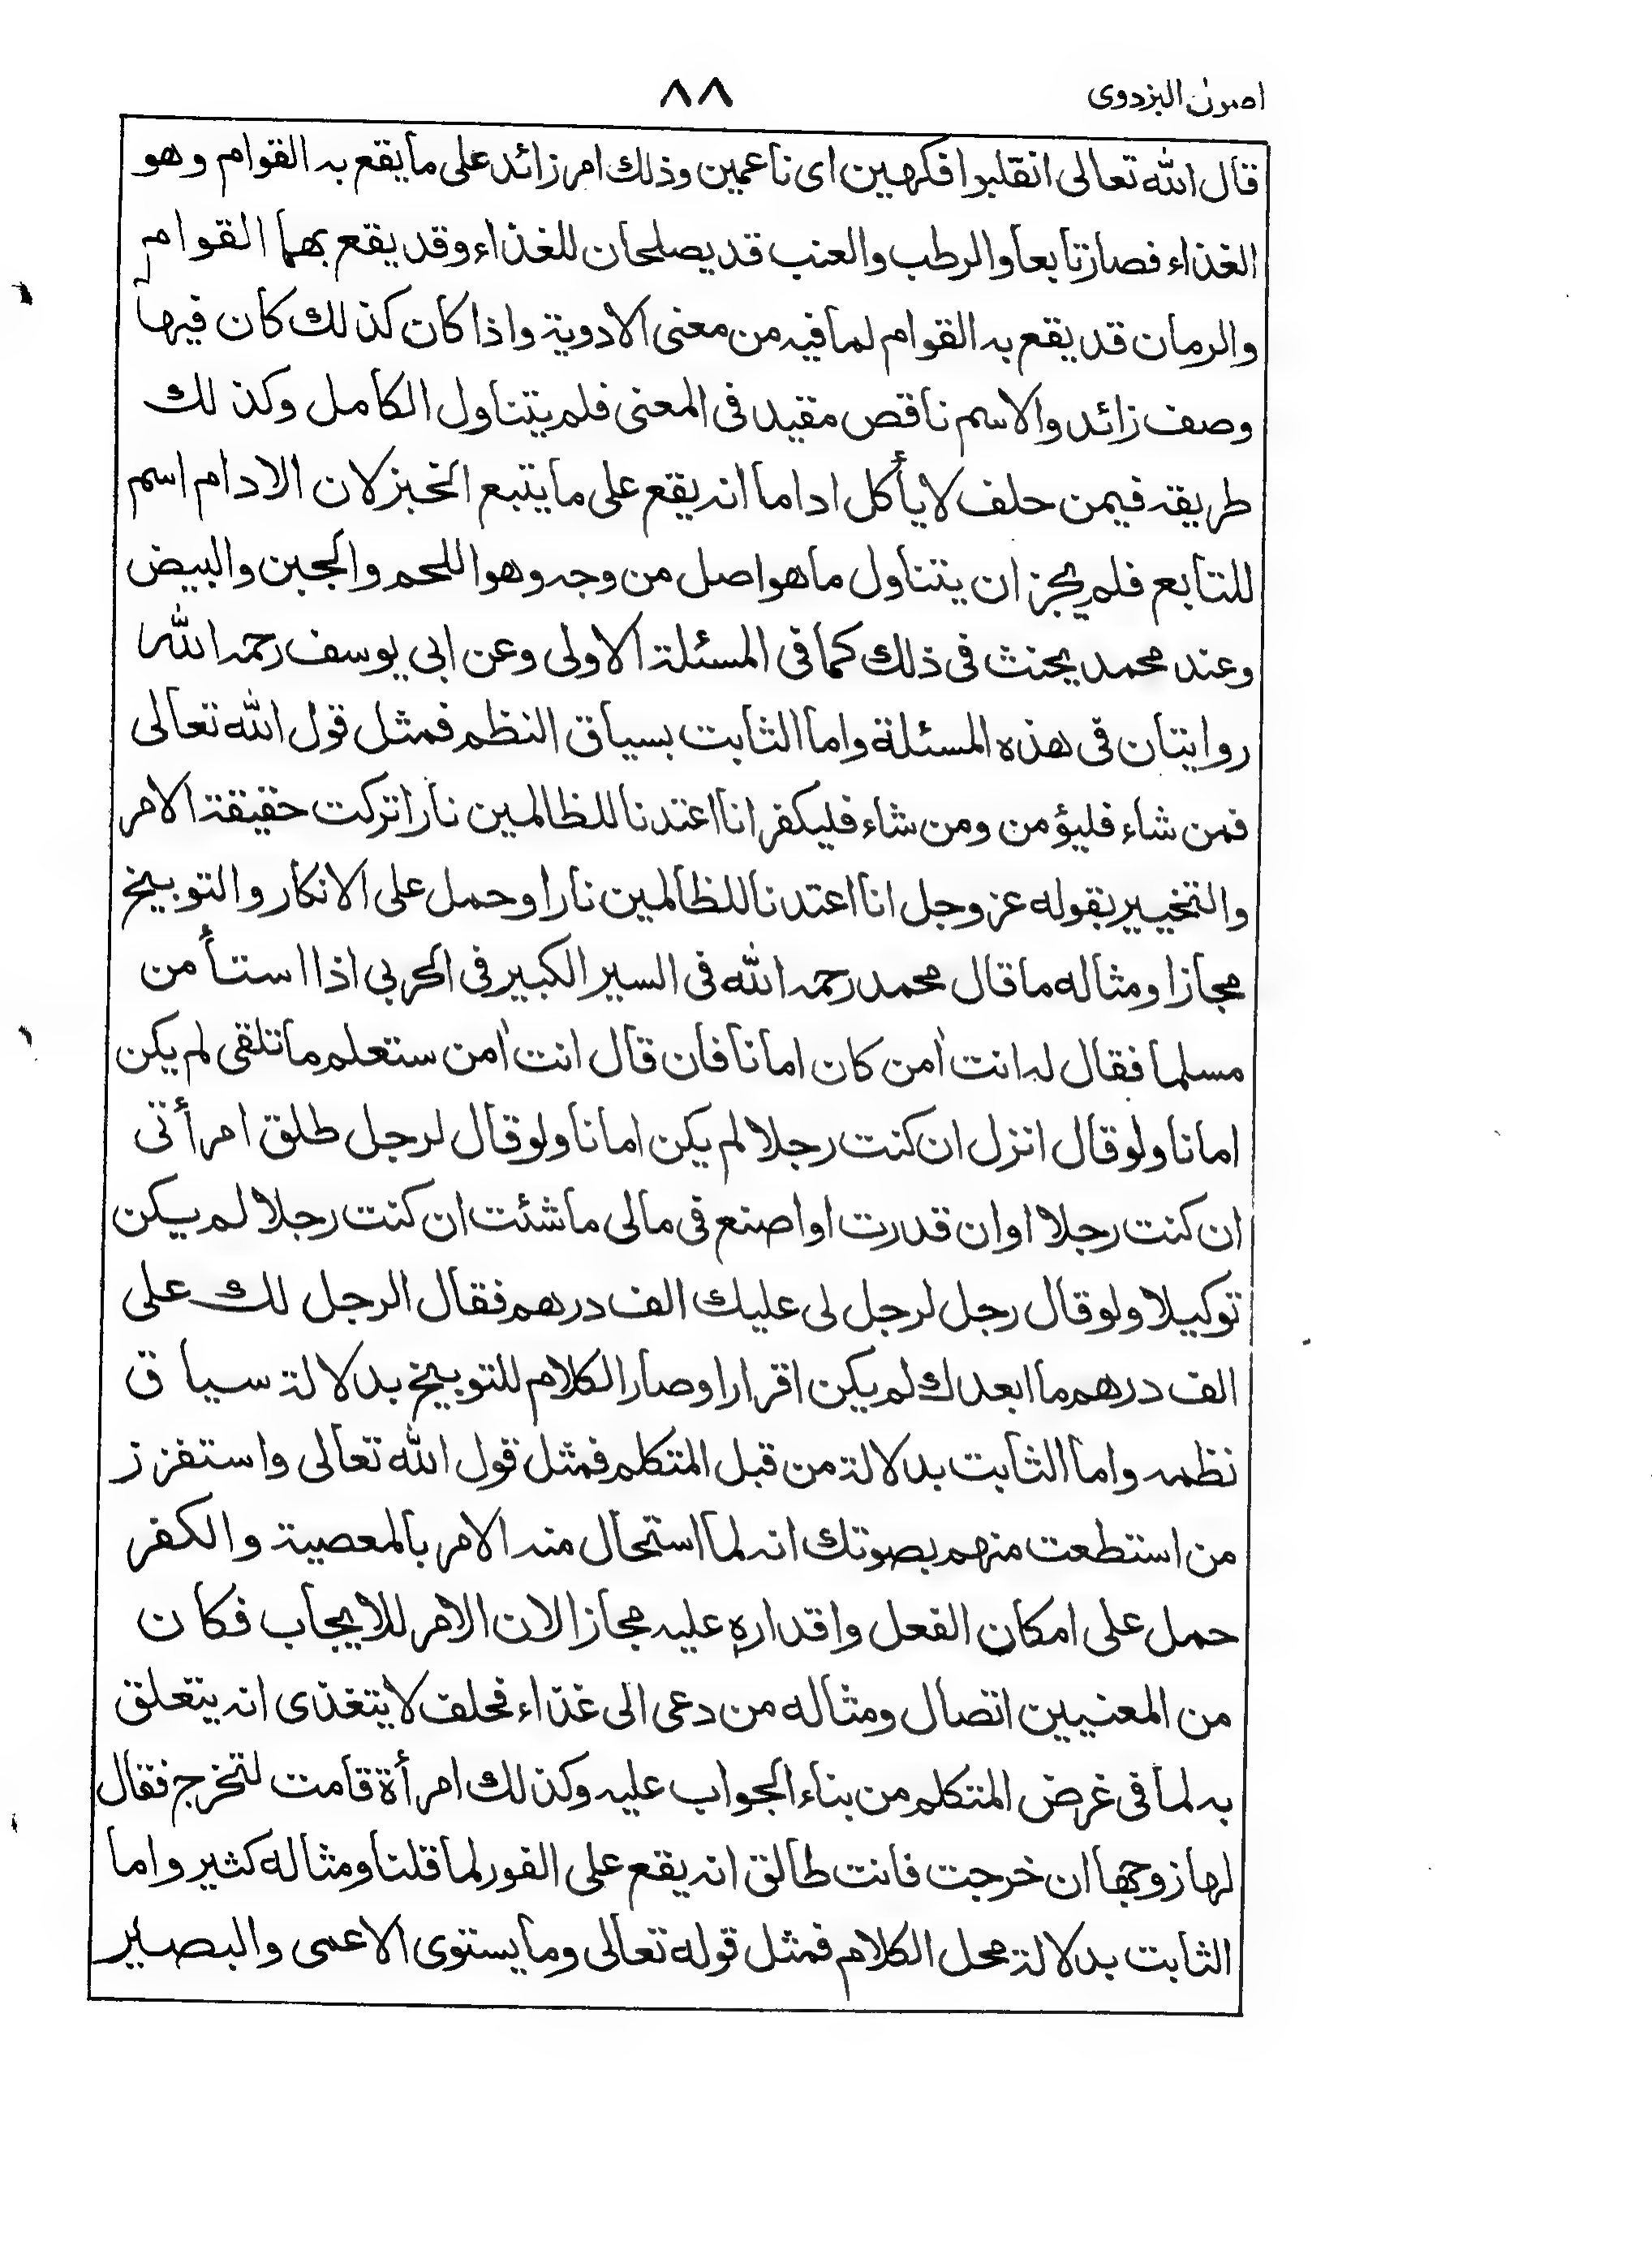 اصول البزدوی
٨٨
قال الله تعالى انقلبوا فكهين اى ناعمين وذلك امر زائد على ما يقع به القوام وهو
الغذاء فصار تابعا والرطب والعنب قد يصلحان للغذاء وقد يقع بهما القوام
والرمان قد يقع به القوام لما فيه من معنى الادوية واذا كان كذلك كان فيها
وصف زائد والاسم ناقص مقيد فى المعنى فلم يتناول الكامل وكذلك
طريقه فيمن حلف لا يأكل اداما انه يقع على ما يتبع الخبز لان الادام اسم
للتابع فلم يجز ان يتناول ما هو اصل من وجه وهو اللحم والجبن والبيض
وعند محمد يحنث فى ذلك كما فى المسئلة الاولى وعن ابى يوسف رحمه الله
روايتان فى هذه المسئلة واما الثابت بسياق النظم فمثل قول الله تعالى
فمن شاء فليؤمن ومن شاء فليكفر انا اعتدنا للظالمين نارا تركت حقيقة الامر
والتخيير بقوله عز وجل انا اعتدنا للظالمين نارا وحمل على الانكار والتوبيخ
مجازا ومثاله ما قال محمد رحمه الله فى السير الكبير فى الحربى اذا استأمن
مسلما فقال له انت اٰمن كان امانا فان قال انت اٰمن ستعلم ما تلقى لم يكن
امانا ولو قال انزل ان كنت رجلا لم يكن امانا ولو قال لرجل طلق امرأتى
ان كنت رجلا او ان قدرت او اصنع فى مالى ما شئت ان كنت رجلا لم يكن
توكيلا ولو قال رجل لرجل لى عليك الف درهم فقال الرجل لك على
الف درهم ما ابعدك لم يكن اقرارا وصار الكلام للتوبيخ بدلالة سياق
نظمه واما الثابت بدلالة من قبل المتكلم فمثل قول الله تعالى واستفزز
من استطعت منهم بصوتك انه لما استحال منه الامر بالمعصية والكفر
حمل على امكان الفعل واقداره عليه مجازا لان الامر للايجاب فكان
من المعنيين اتصال ومثاله من دعى الى غذاء فحلف لا يتغذى انه يتعلق
به لما فى غرض المتكلم من بناء الجواب عليه وكذلك امرأة قامت لتخرج فقال
لها زوجها ان خرجت فانت طالق انه يقع على الفور لما قلنا ومثاله كثير واما
الثابت بدلالة محل الكلام فمثل قوله تعالى وما يستوى الاعمى والبصير